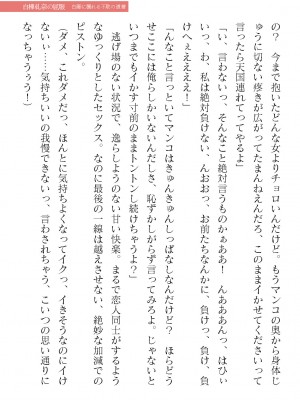 の？　今まで抱いたどんな女よりチョロいんだけど。もうマンコの奥から身体じ
ゅうに切ない疼きが広がってたまんねえんだろ、このままイかせてくださいって
言ったら天国連れてってやるよ」
「い、言わないっ、そんなこと絶対言うものかぁああ！　んあああんっ、はひぃ
いっ、わ、私は絶対負けない、んおおっ、お前たちなんかに、負け、負け、負
けへぇええええ！」
「んなこと言っといてマンコはきゅんきゅんしっぱなしなんだけど？　ほらどう
せここには俺らしかいないんだしさ、恥ずかしがらず言ってみろよ。じゃないと
いつまでもイかす寸前のままでトントンし続けちゃうよ？」
　逃げ場のない状況で、逸らしようのない甘い快楽。まるで恋人同士がするよう
なゆっくりとしたセックス。なのに最後の一線は越えさせない、絶妙な加減での
ピストン。
「ダメ、これダメだっ、ほんとに気持ちよくなってイクっ、イきそうなのにイけ
なぃ……気持ちいいの我慢できないっ、言わされちゃう、こいつの思い通りに
なっちゃうぅう！）